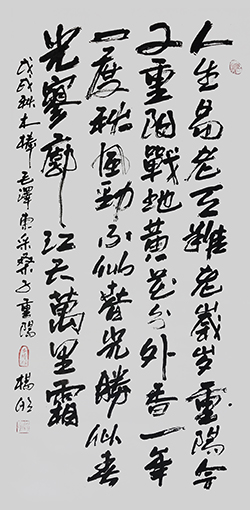 人生易老天難老歲歲重陽今
又重陽戰地黃花分外香一年
一度秋風勁不似春光勝似春
光寥廓江天萬里霜
戊戌秋木 毛澤東采桑子重陽 楊